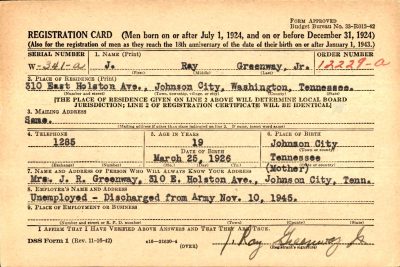 FORM APPROVED
Budget Bureau No. 33-R013-42
REGISTRATION CARD (Men born on or after July 1, 1924, and on or before December 31, 1924)
(Also for the registration of men as they reach the 18th anniversary of the date of their birth on or after January 1, 1943.)
SERIAL NUMBER 1. NAME (Print) ORDER NUMBER
W-341-a J. Ray Greenway, Jr. 12229-a
(First) (Middle) (Last)
2. PLACE OF RESIDENCE (Print)
310 East Holston Ave., Johnson City, Washington, Tennessee.
(Number and street) (Town, township, village, or city) (County) (State)
[THE PLACE OF RESIDENCE GIVEN ON LINE 2 ABOVE WILL DETERMINE LOCAL BOARD
JURISDICTION; LINE 2 OF REGISTRATION CERTIFICATE WILL BE IDENTICAL]
3. MAILING ADDRESS
Same.
[Mailing address if other than place indicated on line 2. If same, insert word same]
4. TELEPHONE 5. AGE IN YEARS 6. PLACE OF BIRTH
1285 19 Johnson City
DATE OF BIRTH (Town or county)
March 25, 1926 Tennessee
(Exchange) (Number) (Mo.) (Day) (Yr.) (State or country)
7. NAME AND ADDRESS OF PERSON WHO WILL ALWAYS KNOW YOUR ADDRESS (Mother)
Mrs. J. R. Greenway, 310 E. Holston Ave., Johnson City, Tenn.
8. EMPLOYER'S NAME AND ADDRESS
Unemployed - Discharged from Army Nov. 10, 1945.
9. PLACE OF EMPLOYMENT OR BUSINESS
(Number and street or R. F. D. number) (Town) (County) (State)
I AFFIRM THAT I HAVE VERIFIED ABOVE ANSWERS AND THAT THEY ARE TRUE.
DSS Form 1 (Rev. 11-16-42) (OVER) J. Ray Greenway Jr
(Registrant's signature)